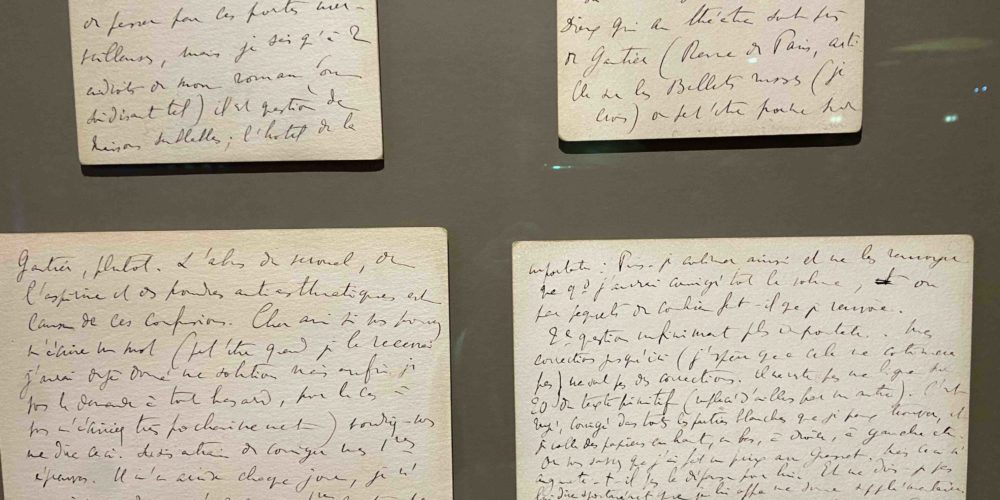 de penser par ces portes mer-
veilleuses, mais je sais qu'à 2
endroits de mon roman (ou
soi disant tel) il est question de
maisons semblables ; l'hotel de la
Dieux qui au théâtre sont
de Gautier (Revue de Paris, arti
cle sur les Ballets russes (je
crois) ou peut'être poême sur
Gautier, plutot. L'abus du véronal, de
l'aspirine et des poudres antiasthmatiques est
cause de ces confusions. Cher ami si vous pouvez
m'écrire un mot (peut'être quand je le recevrai
j'aurai déjà donné une solution mais enfin je
vous le demande à tout hasard, pour le cas où
vous m'écririez très prochainement) voudriez-vous
me dire ceci. Je suis en train de corriger mes 1ères
épreuves. Il m'en arrive chaque jour, je n'
importante : Puis-je continuer ainsi et ne les renvoyer
que qd j'aurai corrigé tout le volume, ou
par paquets de combien faut-il que je renvoie.
2e question infiniment plus importante. Mes
corrections jusqu'ici (j'espère que cela ne continuera
pas) ne sont pas des corrections. Il ne reste pas une ligne sur
20 du texte primitif (remplacé d'ailleurs par un autre). C'est
rayé, corrigé dans toutes les parties blanches que je peux trouver, et
je colle des papiers en haut, en bas, à droite, à gauche etc.
Or vous savez que j'ai fait un prix avec Grasset. Mais ceci n'